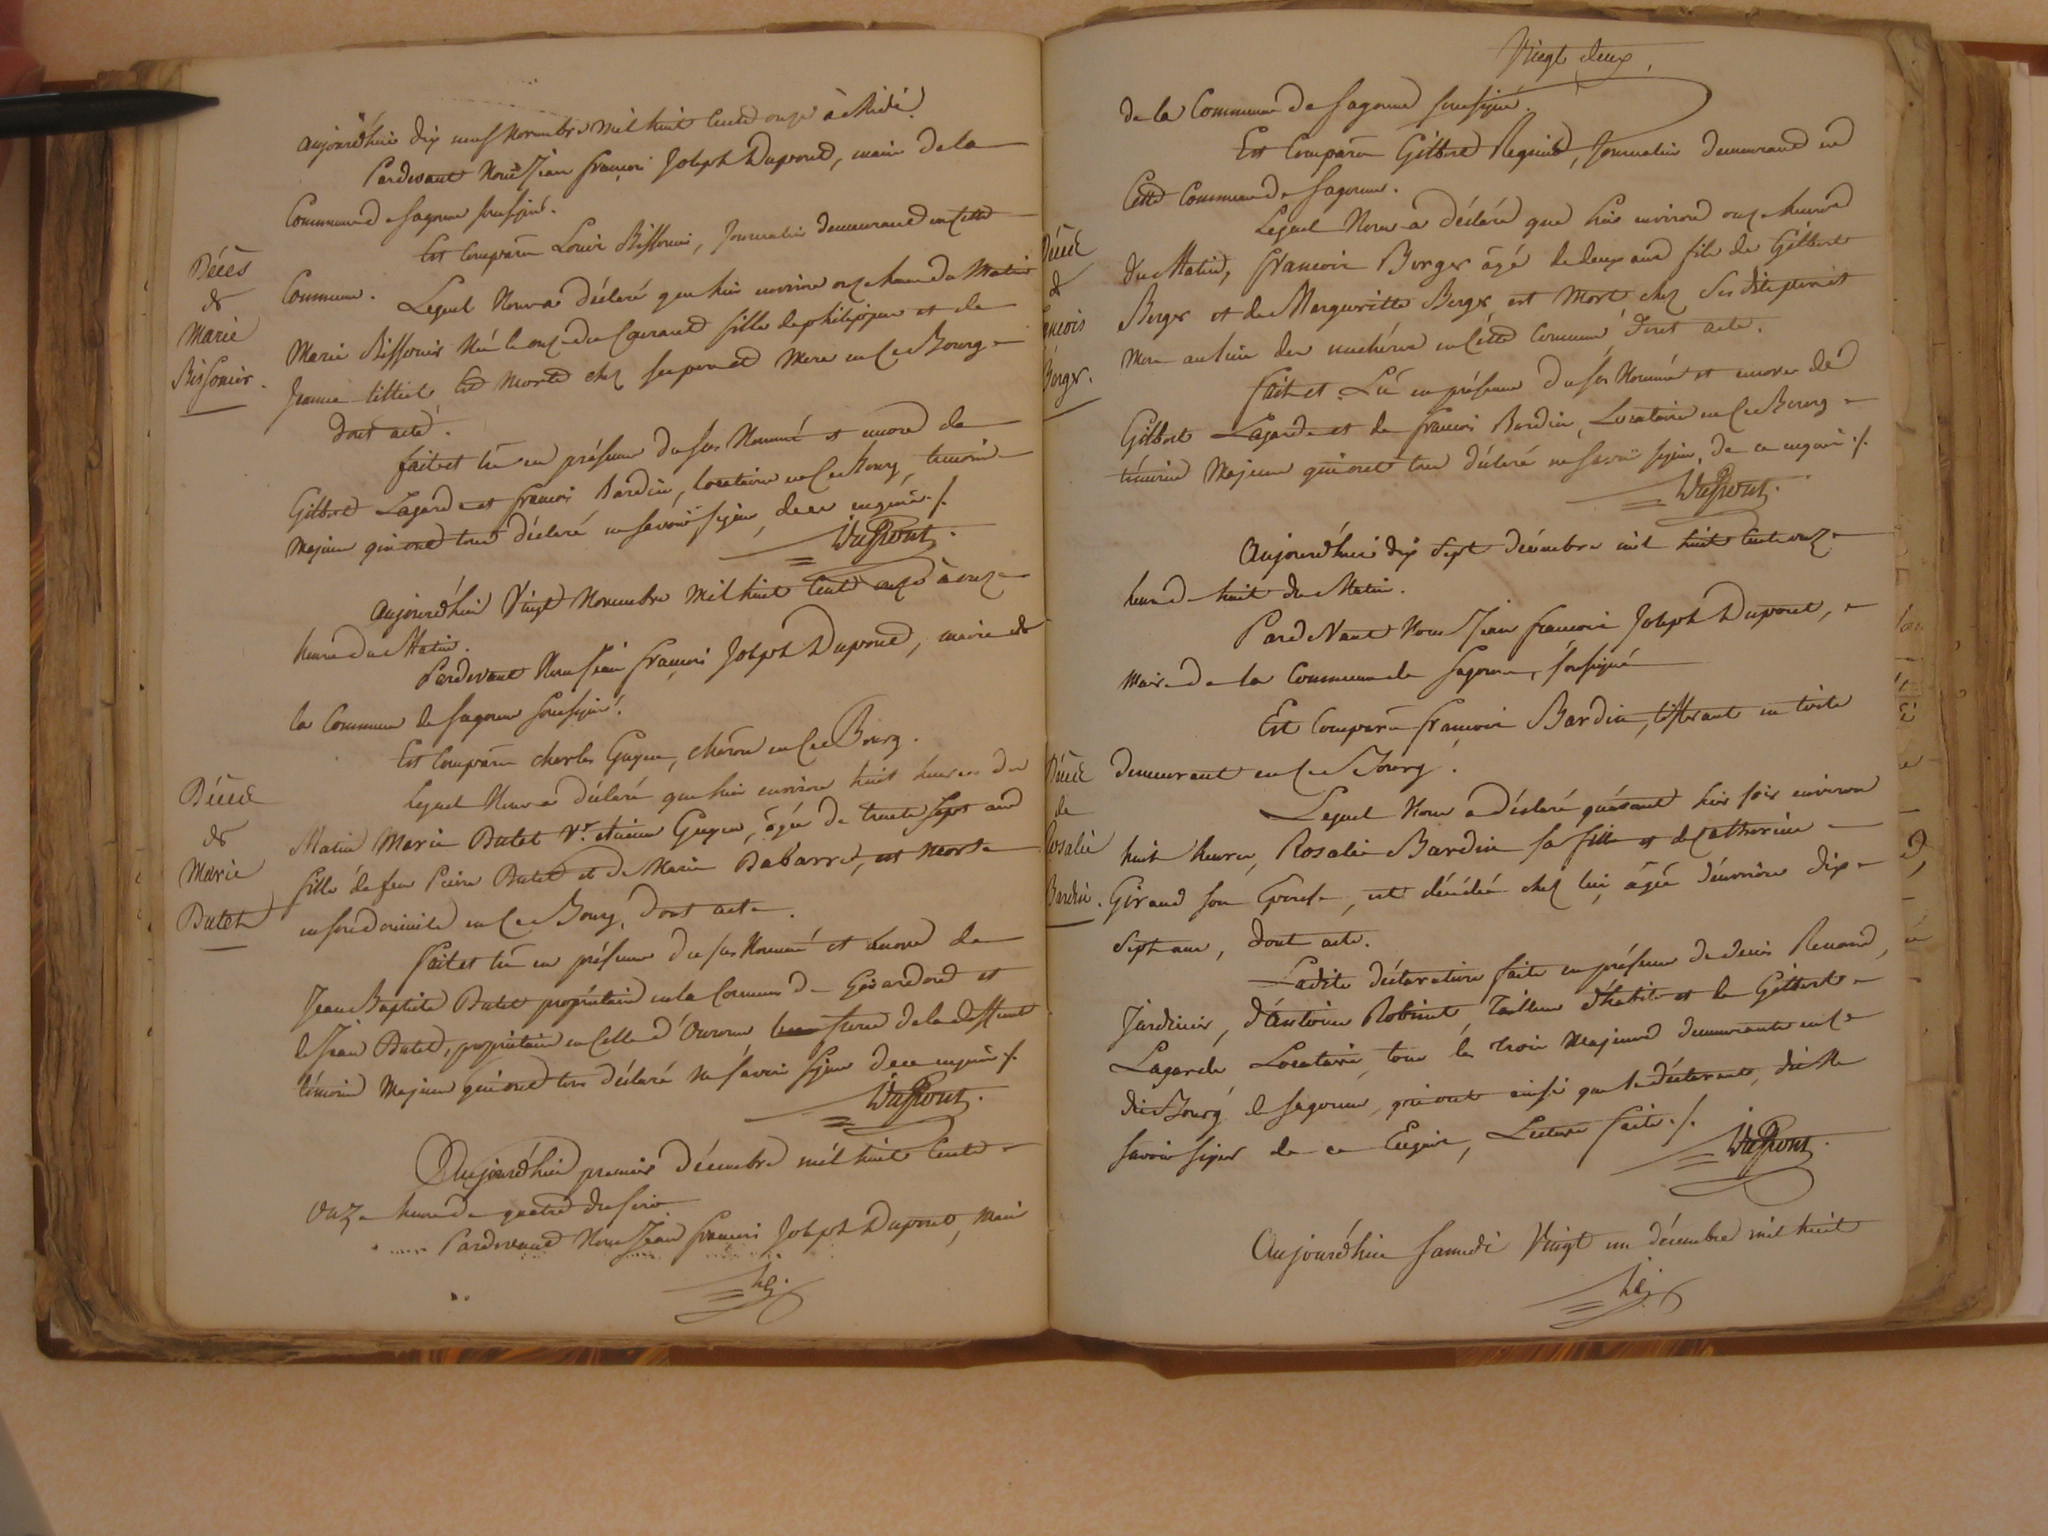 aujourd'hui dix neuf Novembre mil huit Cent onze à Midi
Pardevant Nous Jean françois Joseph Dupront, maire de la
Commune de Sagonne soussigné.
Est Comparu Louis Bissonnier, Journalier demeurant en Cette
Commune.
Lequel Nous a déclaré que hier environ onze heures du Matin
Décès
de
Marie
Bissonier.
Marie Bissonier Née le onze du Courant fille de philippe et de
Jeanne est Morte chez ses père et Mere en Ce Bourg
dont acte.
fait et lû en présence du sus Nommé et encore de
Gilbert Lagarde et françois Bardin, locataire en Ce Bourg, temoins
Majeurs qui ont tous déclaré ne savoir signer, de ce enquis ./.
Dupront.
Aujourd'hui Vingt Novembre Mil huit Cent onze à onze
heures du Matin.
Pardevant Nous Jean françois Joseph Dupront, maire de
la Commune de Sagonne soussigné.
Est Comparu Charles Guyon, Charon en Ce Bourg.
Lequel Nous a déclaré que hier environ huit heures du
Décès
de
Marie
Butet
Matin Marie Butet Ve. etienne Guyon, âgée de trente sept ans
fille de feu Pierre Butet et de Marie Dabarre, est Morte
en son domicile en Ce Bourg, dont acte.
Fait et lû en présence du sus Nommé et encore de
Jean Baptiste Butet propriétaire en la Commune de Givardon et
de Jean Butet, propriétaire en Celle d'Ourouer freres de la deffunte
témoins Majeurs qui ont tous déclaré ne savoir signer de ce enquis ./.
Dupront.
Aujourd'hui premier décembre mil huit Cent
onze heures de quatre du soir.
Pardevant Nous Jean francois Joseph Dupront, Maire
Vingt deux.
de la Commune de Sagonne soussigné.
Est Comparu Gilbert Regnier, Journalier demeurant en
Cette Commune de Sagonne.
Lequel Nous a déclaré que hier environ onze heures
Décès
de
ancois
Berger.
du Matin, Francois Berger âgé de deux ans fils de Gilbert
Berger et de Marguerite Berger est Mort chez ses dits père et
Mere au lieu des en Cette Commune, dont acte.
fait et Lû en présence du sus Nommé et encore de
Gilbert Lagarde et de francois Bardin, Locataire en Ce Bourg
témoins Majeurs qui ont tous déclaré ne savoir signer, de ce enquis ./.
Dupront.
Aujourd'hui dix Sept décembre mil huit Cent onze
heures de huit du Matin.
Pardevant Nous Jean francois Joseph Dupront,
Maire de la Commune de Sagonne, soussigné
Est Comparu françois Bardin, tisserant en toile
demeurant en Ce Bourg.
Lequel Nous a déclaré qu'avant hier soir environ
Décès
de
Rosalie
Bardin.
huit heures, Rosalie Bardin sa fille et de Catherine
Giraud son Epouse, est décédée chez lui, âgée d'environ dix
Sept ans, dont acte.
Ladite déclaration faite en présence de denis Renaud,
Jardinier, d'Antoine Robinet, Tailleur d'habits et de Gilbert
Lagarde Locataire, tous les trois Majeurs demeurants en Ce
dit Bourg de Sagonne, qui ont ainsi que le déclarant, dit ne
savoir signer de ce Enquis, Lecture faite ./.
Dupront.
Aujourd'hui Samedi Vingt un décembre mil huit